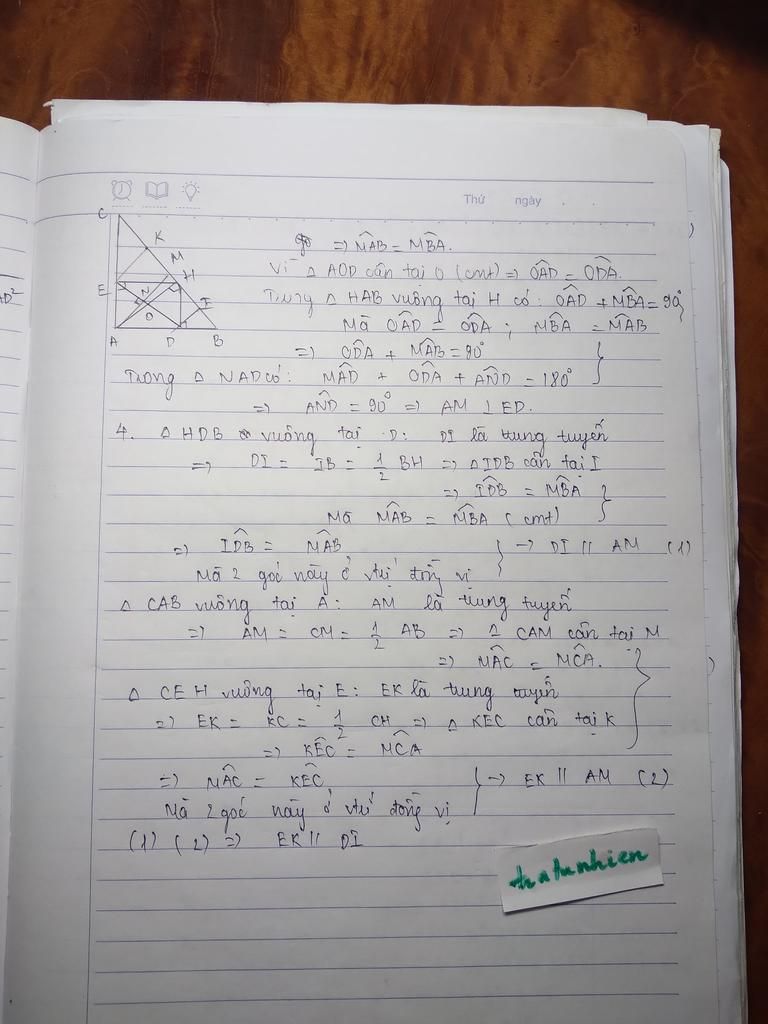 Thứ ngày
C
K
M
E
H
N
I
O
A D B
AD²
=> M̂AB = M̂BA.
Vì Δ AOD cân tại O (cmt) => ÔAD = ÔDA.
Trong Δ HAB vuông tại H có: ÔAD + M̂BA = 90°
Mà ÔAD = ÔDA ; M̂BA = M̂AB
=> ÔDA + M̂AB = 90°
Trong Δ NAD có: M̂AD + ÔDA + ÂND = 180°
=> ÂND = 90° => AM ⊥ ED.
4. Δ HDB vuông tại D: DI là trung tuyến
=> DI = IB = 1/2 BH => Δ IDB cân tại I
=> ÎDB = M̂BA
Mà M̂AB = M̂BA (cmt)
=> ÎDB = M̂AB -> DI // AM (1)
Mà 2 góc này ở vtrí đồng vị
Δ CAB vuông tại A: AM là trung tuyến
=> AM = CM = 1/2 AB => Δ CAM cân tại M
=> M̂AC = M̂CA.
Δ CEH vuông tại E: EK là trung tuyến
=> EK = KC = 1/2 CH => Δ KEC cân tại K
=> K̂EC = M̂CA
=> M̂AC = K̂EC -> EK // AM (2)
Mà 2 góc này ở vtrí đồng vị
(1) (2) => EK // DI
tratunhien